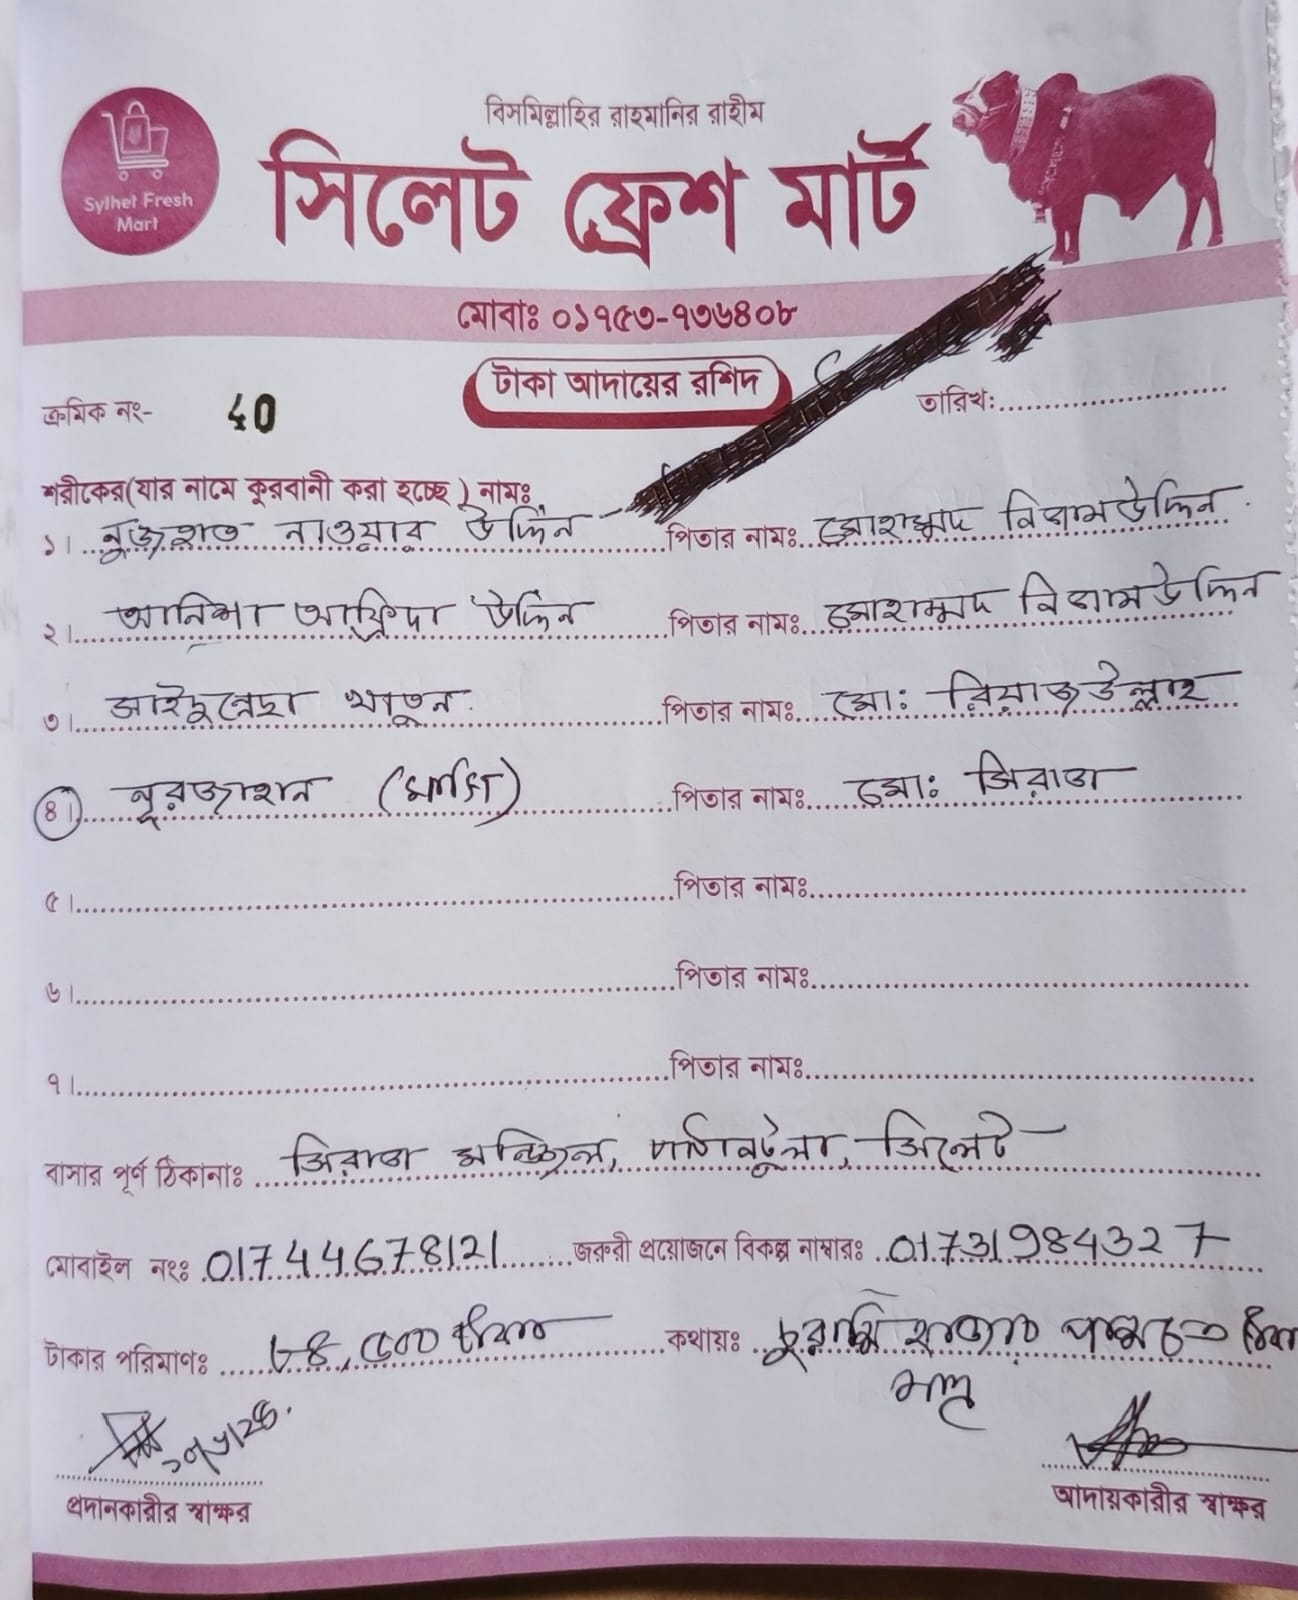 বিসমিল্লাহির রাহমানির রাহীম
Sylhet Fresh
Mart
সিলেট ফ্রেশ মার্ট
মোবাঃ ০১৭৫৩-৭৩৬৪০৮
টাকা আদায়ের রশিদ
ক্রমিক নং- 40 তারিখ:
শরীকের(যার নামে কুরবানী করা হচ্ছে) নামঃ
১। নুজহাত নাওয়ার উদ্দিন পিতার নামঃ মোহাম্মদ নিজাম উদ্দিন
২। আনিশা আফ্রিদা উদ্দিন পিতার নামঃ মোহাম্মদ নিজাম উদ্দিন
৩। সাইদুন্নেছা খাতুন পিতার নামঃ মো: রিয়াজ উল্লাহ
৪। নূরজাহান (মার্জি) পিতার নামঃ মো: সিরাজ
৫। পিতার নামঃ
৬। পিতার নামঃ
৭। পিতার নামঃ
বাসার পূর্ণ ঠিকানাঃ সিরাজ মঞ্জিল, পাঠানটুলা, সিলেট
মোবাইল নংঃ 01744678121 জরুরী প্রয়োজনে বিকল্প নাম্বারঃ 01731984327
টাকার পরিমাণঃ ৮৪,৫০০ টাকা কথায়ঃ চুরাশি হাজার পাঁচশত টাকা
মাত্র
প্রদানকারীর স্বাক্ষর আদায়কারীর স্বাক্ষর